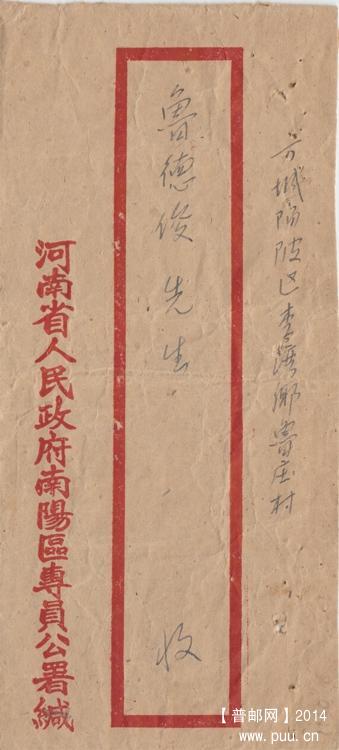 方城陌陂区李蓬乡鲁庄村
魯德俊先生 收
河南省人民政府南陽區專員公署緘
【普邮网】2014
www.puu.cn